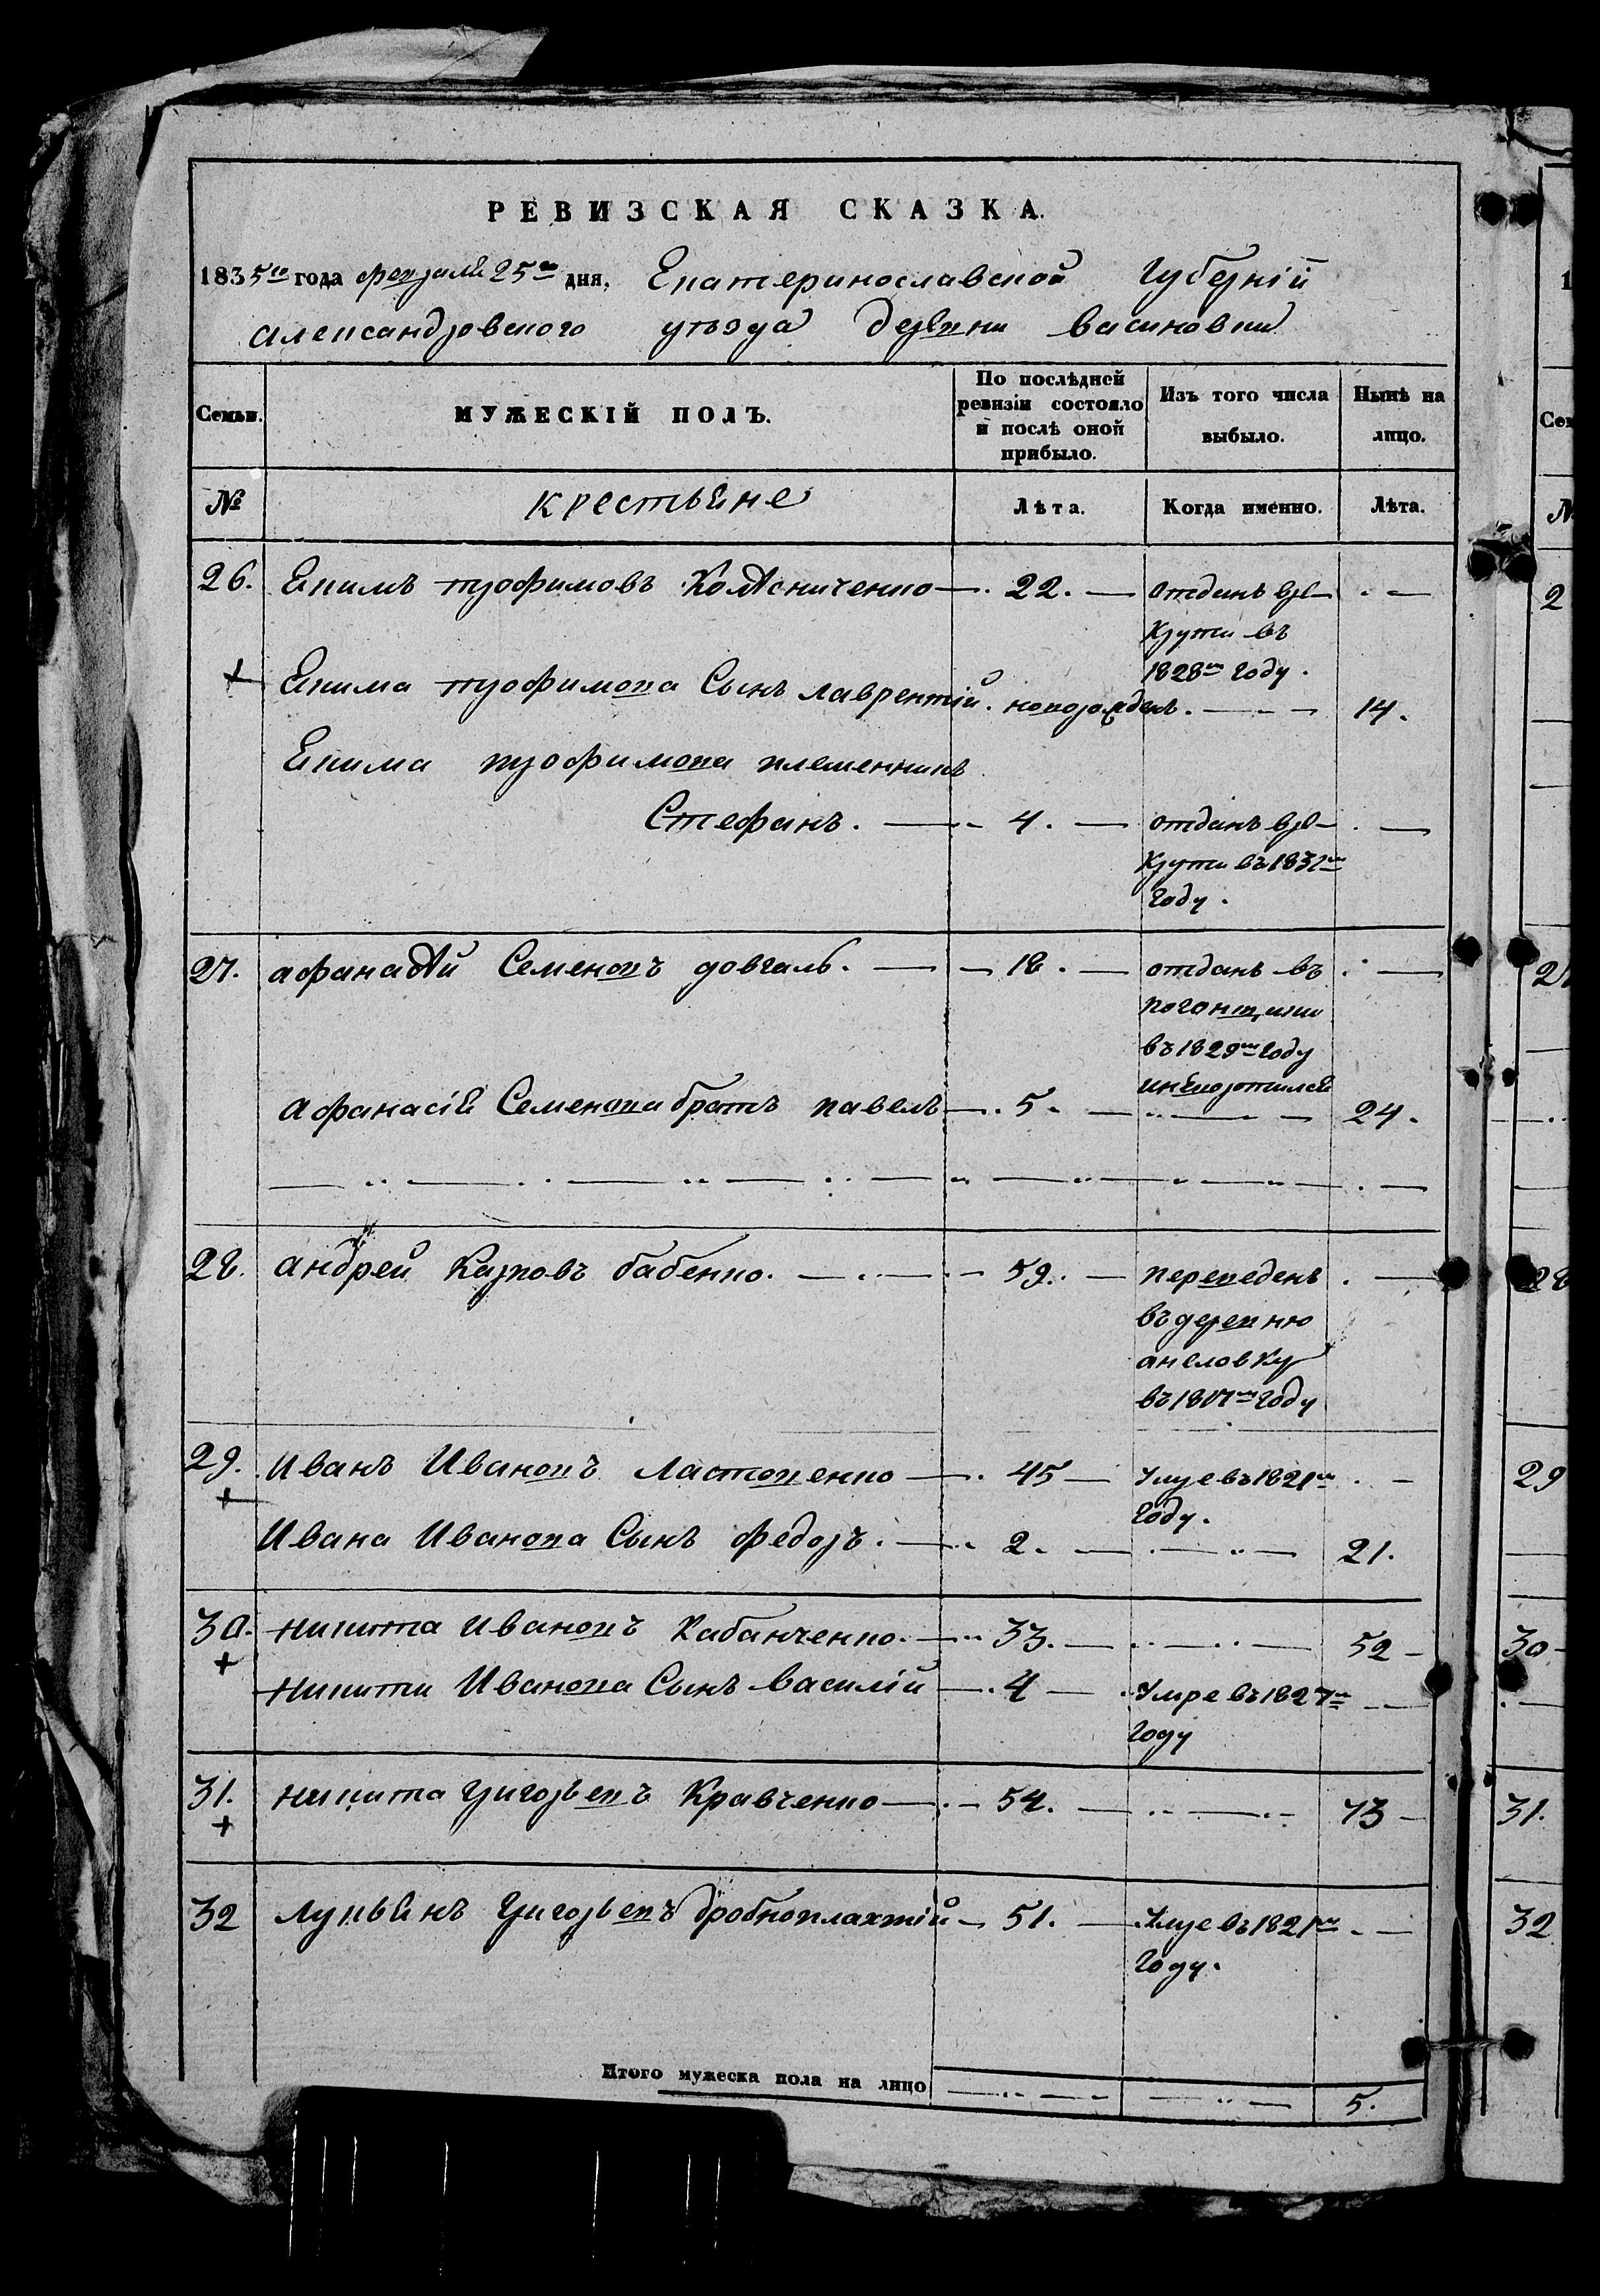 РЕВИЗСКАЯ СКАЗКА.
1835го года февраля 25го дня, Екатеринославской Губерніи
Александровского уезда деревни васиновки
Семьи. МУЖЕСКІЙ ПОЛЪ. По послѣдней ревизіи состояло и послѣ оной прибыло. Изъ того числа выбыло. Нынѣ на лицо.
№ крестьяне Лѣта. Когда именно. Лѣта.
26. Екимъ трофимовъ Колѣсниченко 22. отданъ вре
Круты въ
1828м году.
Екима трофимова Сынъ лаврентій. новорожден. 14.
Екима трофимова племенникъ
Стефанъ. 4. отданъ вре
Круты въ 1831м
году.
27. афанасій Семеновъ довгаль. 18. отданъ въ
погонщики
въ 1829м году
иневозотился
афанасія Семенова братъ павелъ 5. 24.
28. андрей Карповъ бабенко. 59. переведенъ
въ деревню
анеловку
въ 1817м году
29. Иванъ Ивановъ Ластовенко 45 Умре въ 1821м
году.
Ивана Иванова Сынъ федоръ. 2. 21.
30. никита Ивановъ Кабанченко. 33. 52
никиты Иванова Сынъ василій 4 Умре въ 1827м
году
31. никита григорьевъ Кравченко 54. 73
32 лукьянъ григорьевъ дробноплахтій 51. Умре въ 1821м
году.
Итого мужеска пола на лицо 5.
2
29
30
31.
32